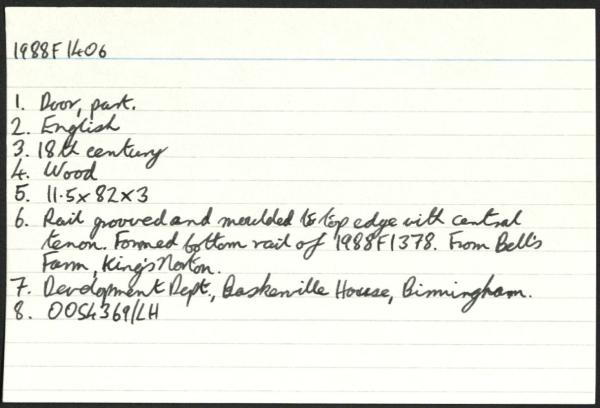 1988F1406
1. Door, part.
2. English
3. 18th century
4. Wood
5. 11.5 x 82 x 3
6. Rail grooved and moulded to top edge with central
tenon. Formed bottom rail of 1988F1378. From Bell's
Farm, King's Norton.
7. Development Dept., Baskerville House, Birmingham.
8. OOS4369/LH